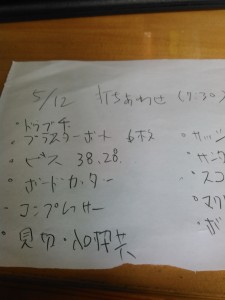 5/12 打ちあわせ (7:30
・ドラブチ
・プラスターボード 6枚
・ビス 38.28.
・ボードカッター
・コンプレッサー
・見切・入口枠共
・サッシ
・サンダ
・スコ
・マク
・ボ